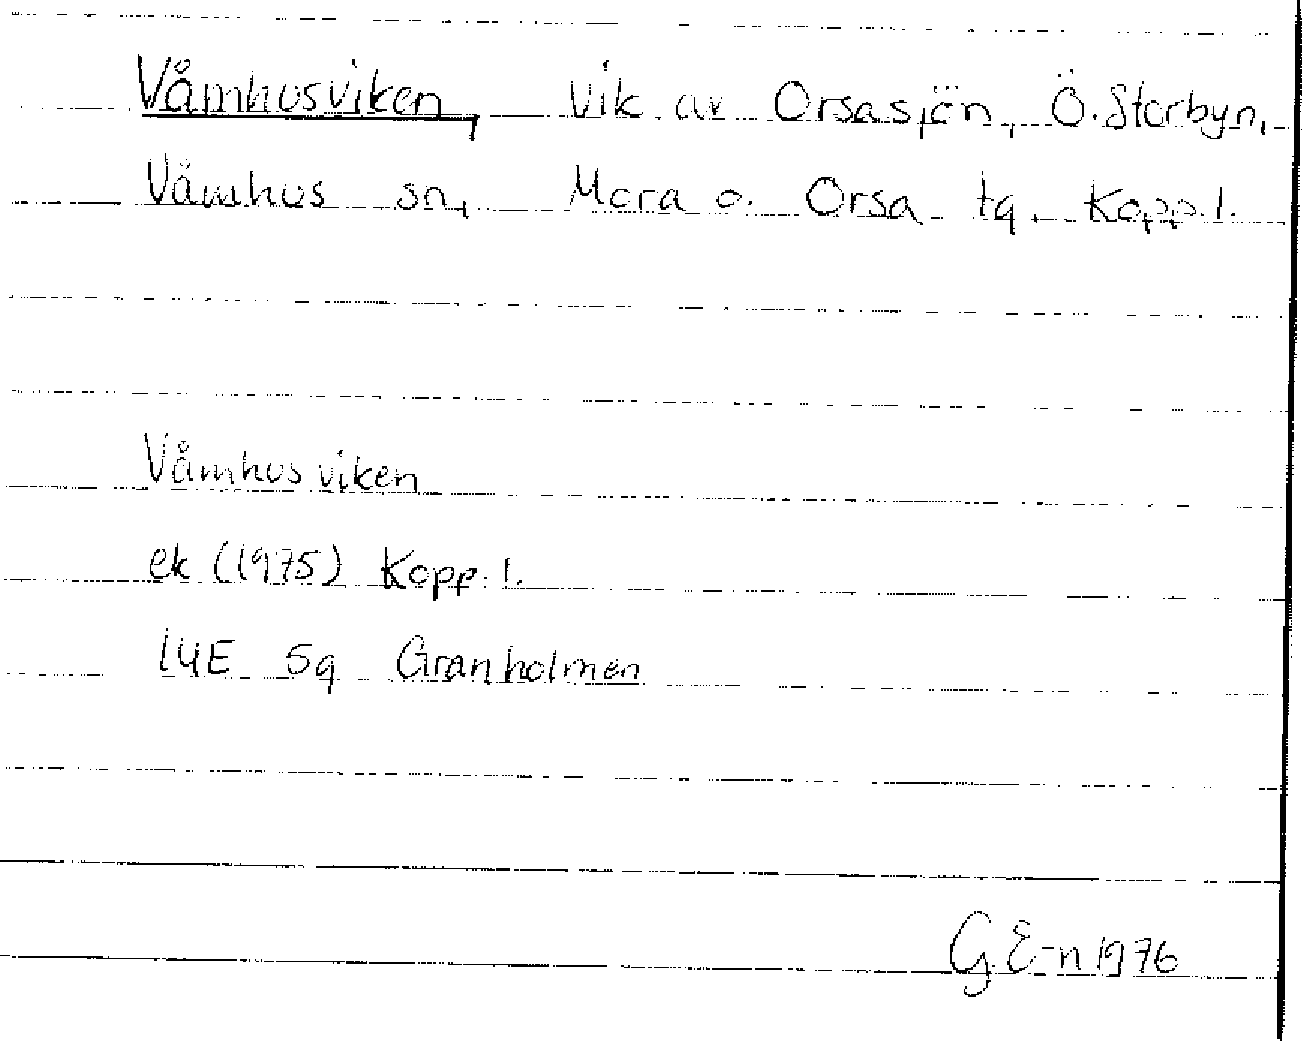 Våmhusviken, vik av Orsasjön, Ö. Storbyn,
Våmhus sn, Mora o. Orsa tg. Kopp. l.
Våmhusviken
ek (1975) Kopp. l.
14E 5g Granholmen
G. E-n 1976